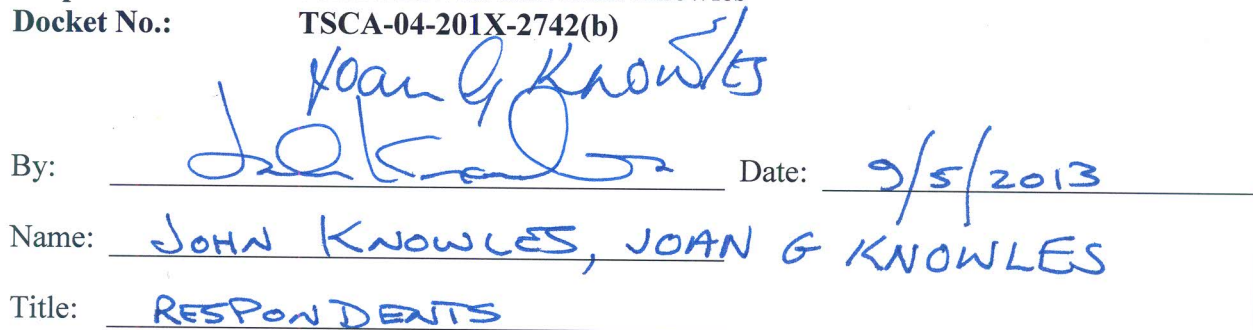 Docket No.: TSCA-04-201X-2742(b)
Joan G Knowles
By: John Knowles Date: 9/5/2013
Name: JOHN KNOWLES, JOAN G KNOWLES
Title: RESPONDENTS